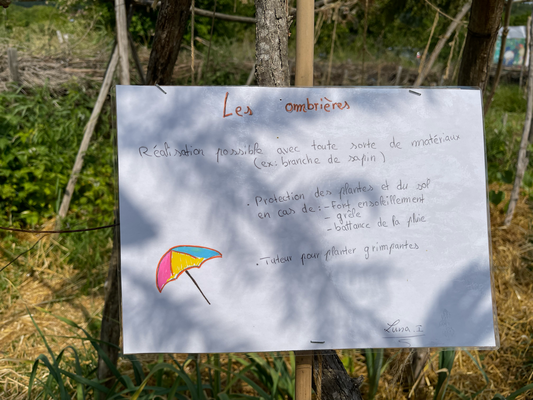 Les ombrières
Réalisation possible avec toute sorte de matériaux
(ex: branche de sapin)
• Protection des plantes et du sol
en cas de: - fort ensoleillement
- grêle
- battance de la pluie
• Tuteur pour planter grimpantes
Luna I